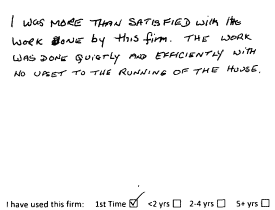 I WAS MORE THAN SATISFIED with the
WORK DONE by this firm. THE WORK
WAS DONE QUIETLY AND EFFICIENTLY WITH
NO UPSET TO THE RUNNING OF THE HOUSE.
I have used this firm: 1st Time ☑ <2 yrs ☐ 2-4 yrs ☐ 5+ yrs ☐